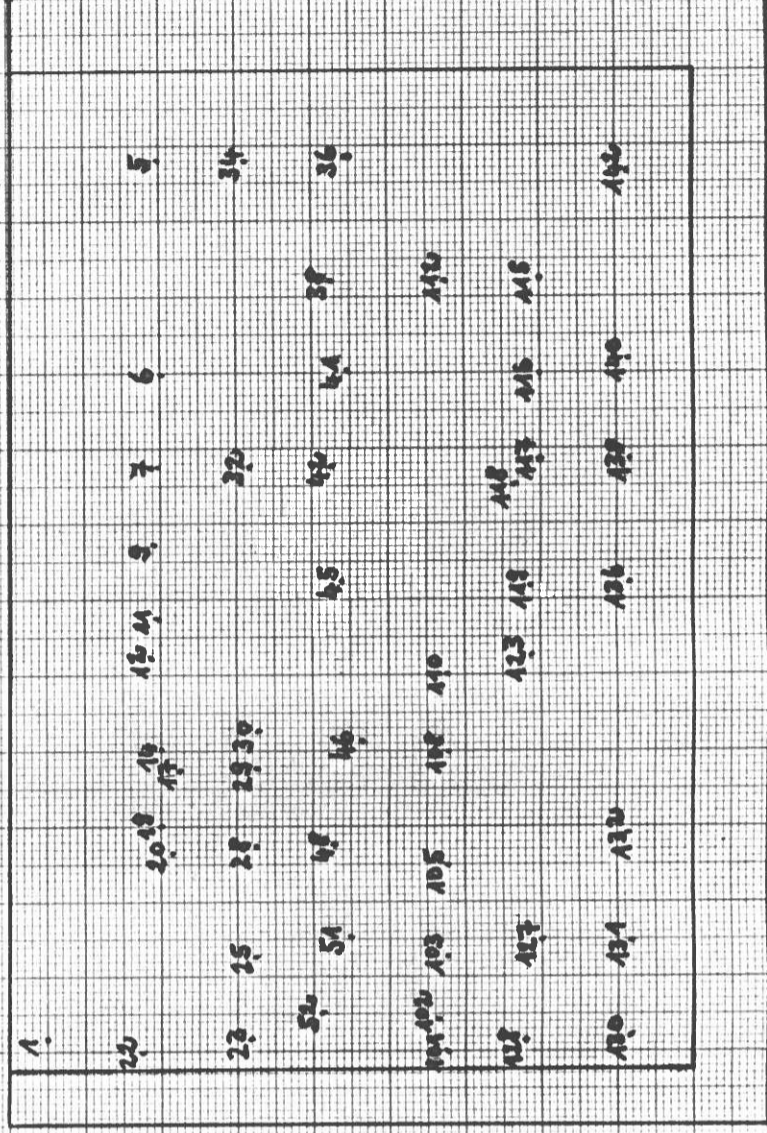 1
22 20 19 17 14 12 11 9 7 6 5
23 25 28 29 30 32 34
52 51 48 46 45 42 41 38 36
101 102 103 105 108 110 112
128 127 123 119 118 117 116 115
130 131 132 136 138 140 142